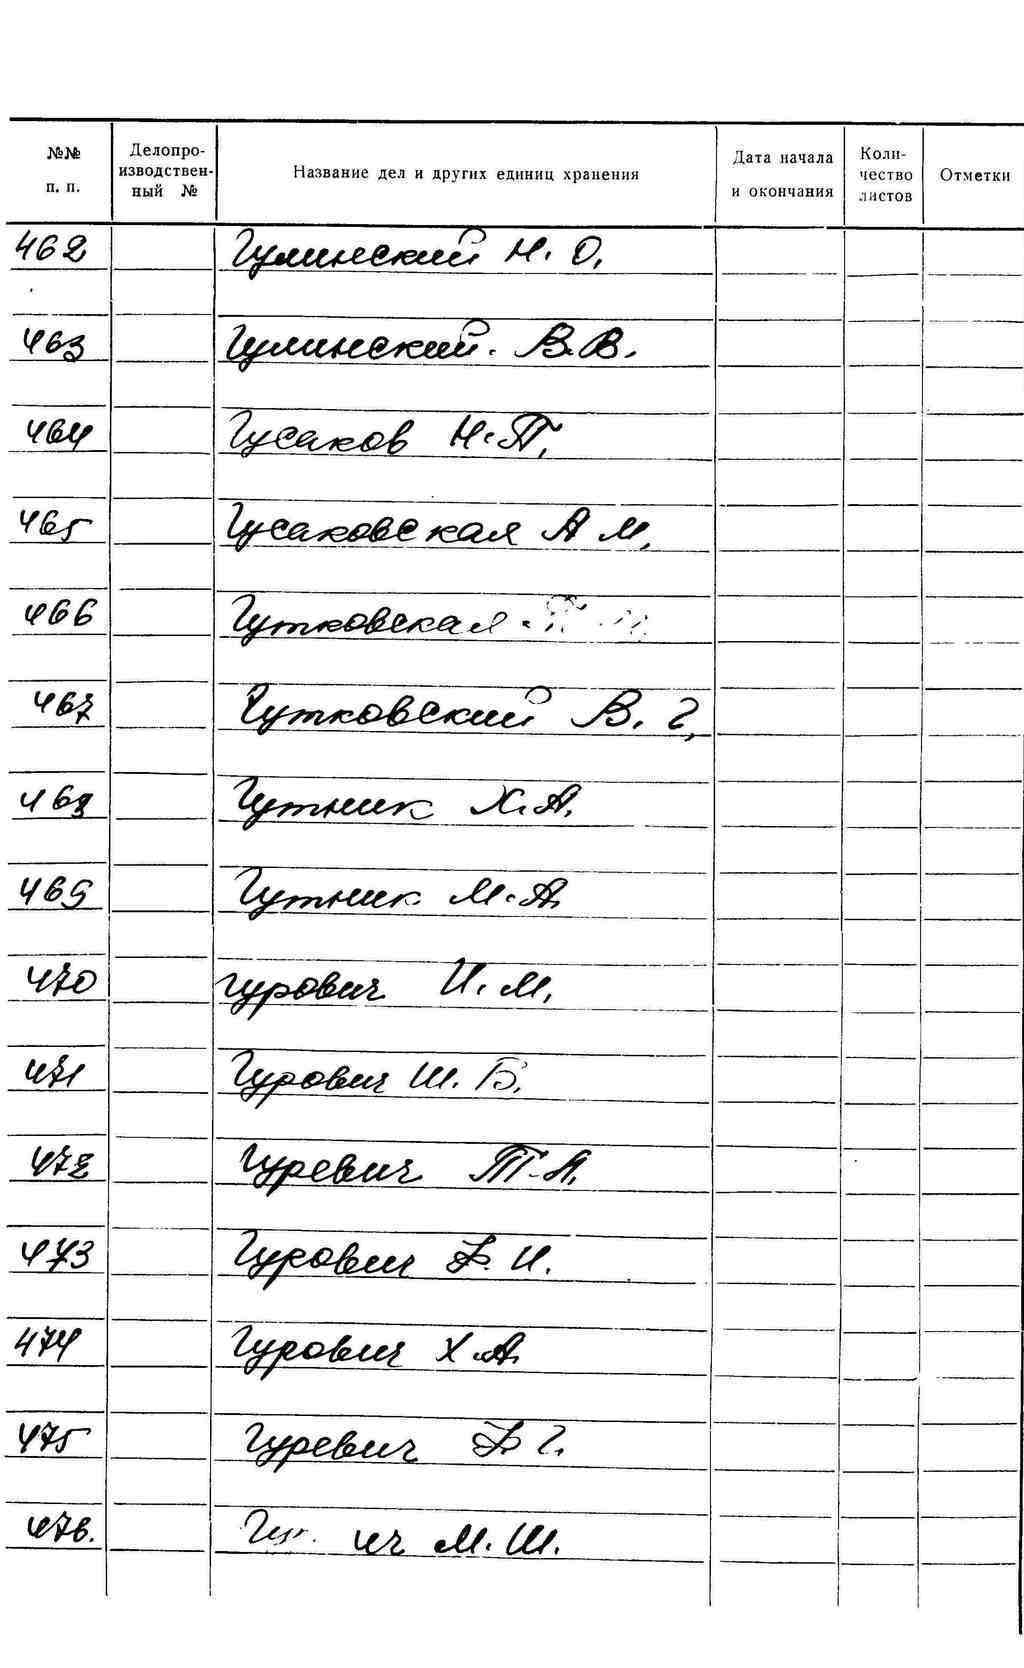 №№ п. п. Делопроизводственный № Название дел и других единиц хранения Дата начала и окончания Количество листов Отметки
462 Гулинский Н. О.
463 Гулинский. В. В.
464 Гусаков Н. П.
465 Гусаковская А М.
466 Гутковская
467 Гутковский В. Г.
468 Гутник Х. А.
469 Гутник М. А.
470 Гурович И. М.
471 Гурович Ш. Б.
472 Гуревич Т. А.
473 Гурович Ф. И.
474 Гурович Х. А.
475 Гуревич Ф Г.
476. М. Ш.